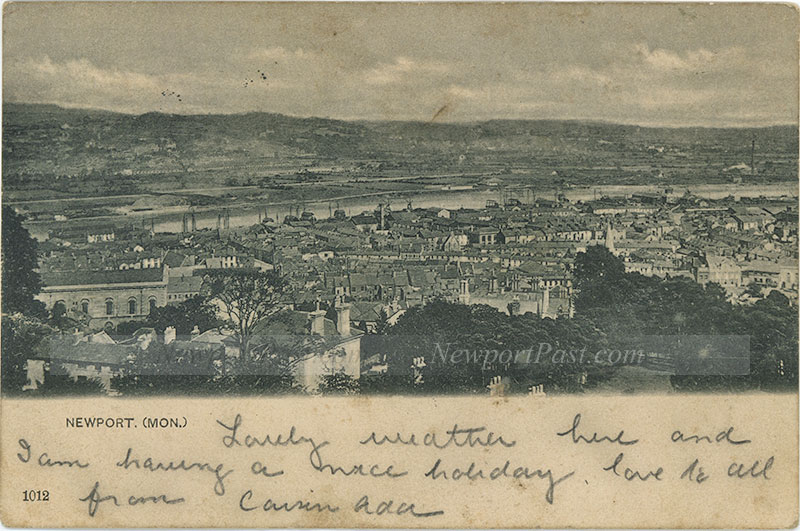 NewportPast.com
NEWPORT. (MON.)
Lovely weather here and
I am having a nice holiday. love to all
1012
from Cousin Ada